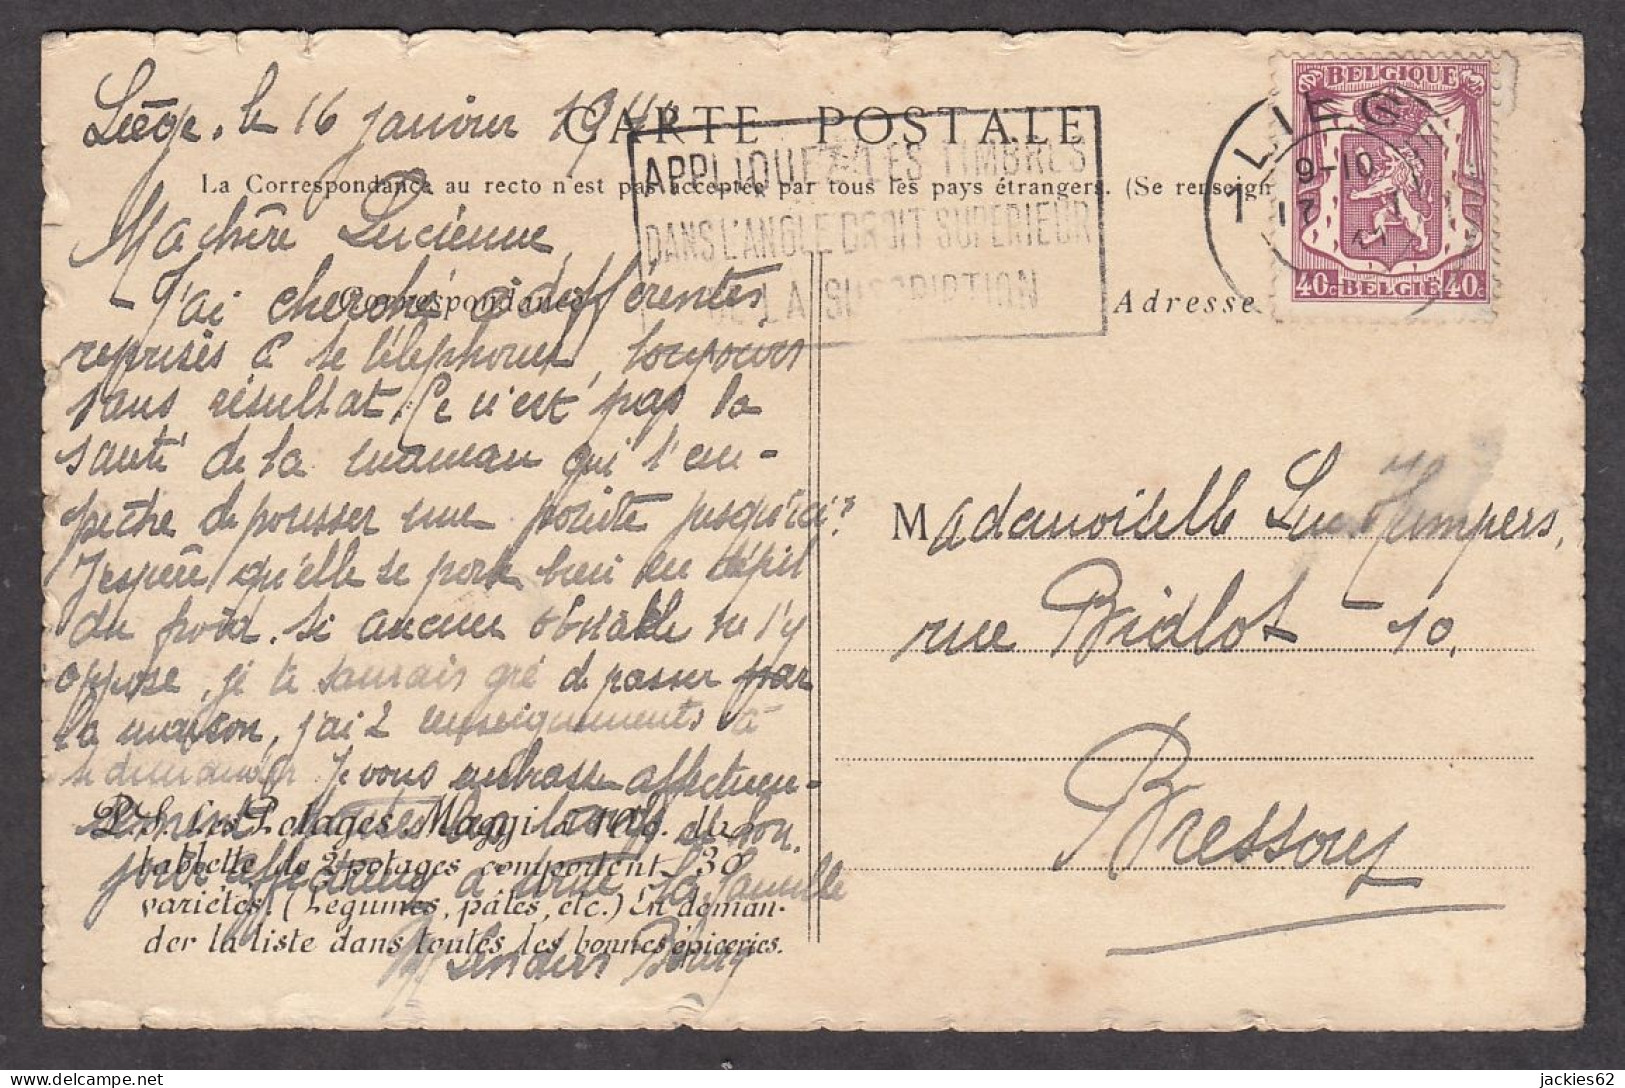 CARTE POSTALE
Liège, le 16 janvier
APPLIQUEZ LES TIMBRES
DANS L'ANGLE DROIT SUPERIEUR
DE LA SUSCRIPTION
La Correspondance au recto n'est pas acceptée par tous les pays étrangers. (Se renseign
BELGIQUE
40c BELGIË 40c
1 LIEGE 1
9-10
17 I
Correspondance
Adresse
Ma chère Lucienne,
- J'ai cherché à différentes
reprises à te téléphoner, toujours
sans résultat. Ce n'est pas la
santé de la maman qui t'em-
pêche de pousser une pointe jusqu'ici?
J'espère qu'elle se porte bien en dépit
du froid. Si aucun obstacle ne s'y
oppose, je te saurais gré de passer par
la maison, j'ai 2 renseignements à
te demander. Je vous embrasse affectueu-
sement et bon
à toute la famille
Mademoiselle Luc. Kempers,
rue Bidlot - 10.
Bressoux
P.S. Les Potages Maggi à 1 fr. la
tablette de 2 potages comportent 30
variétés. (Légumes, pâtes, etc.) En deman-
der la liste dans toutes les bonnes épiceries.
jackies62